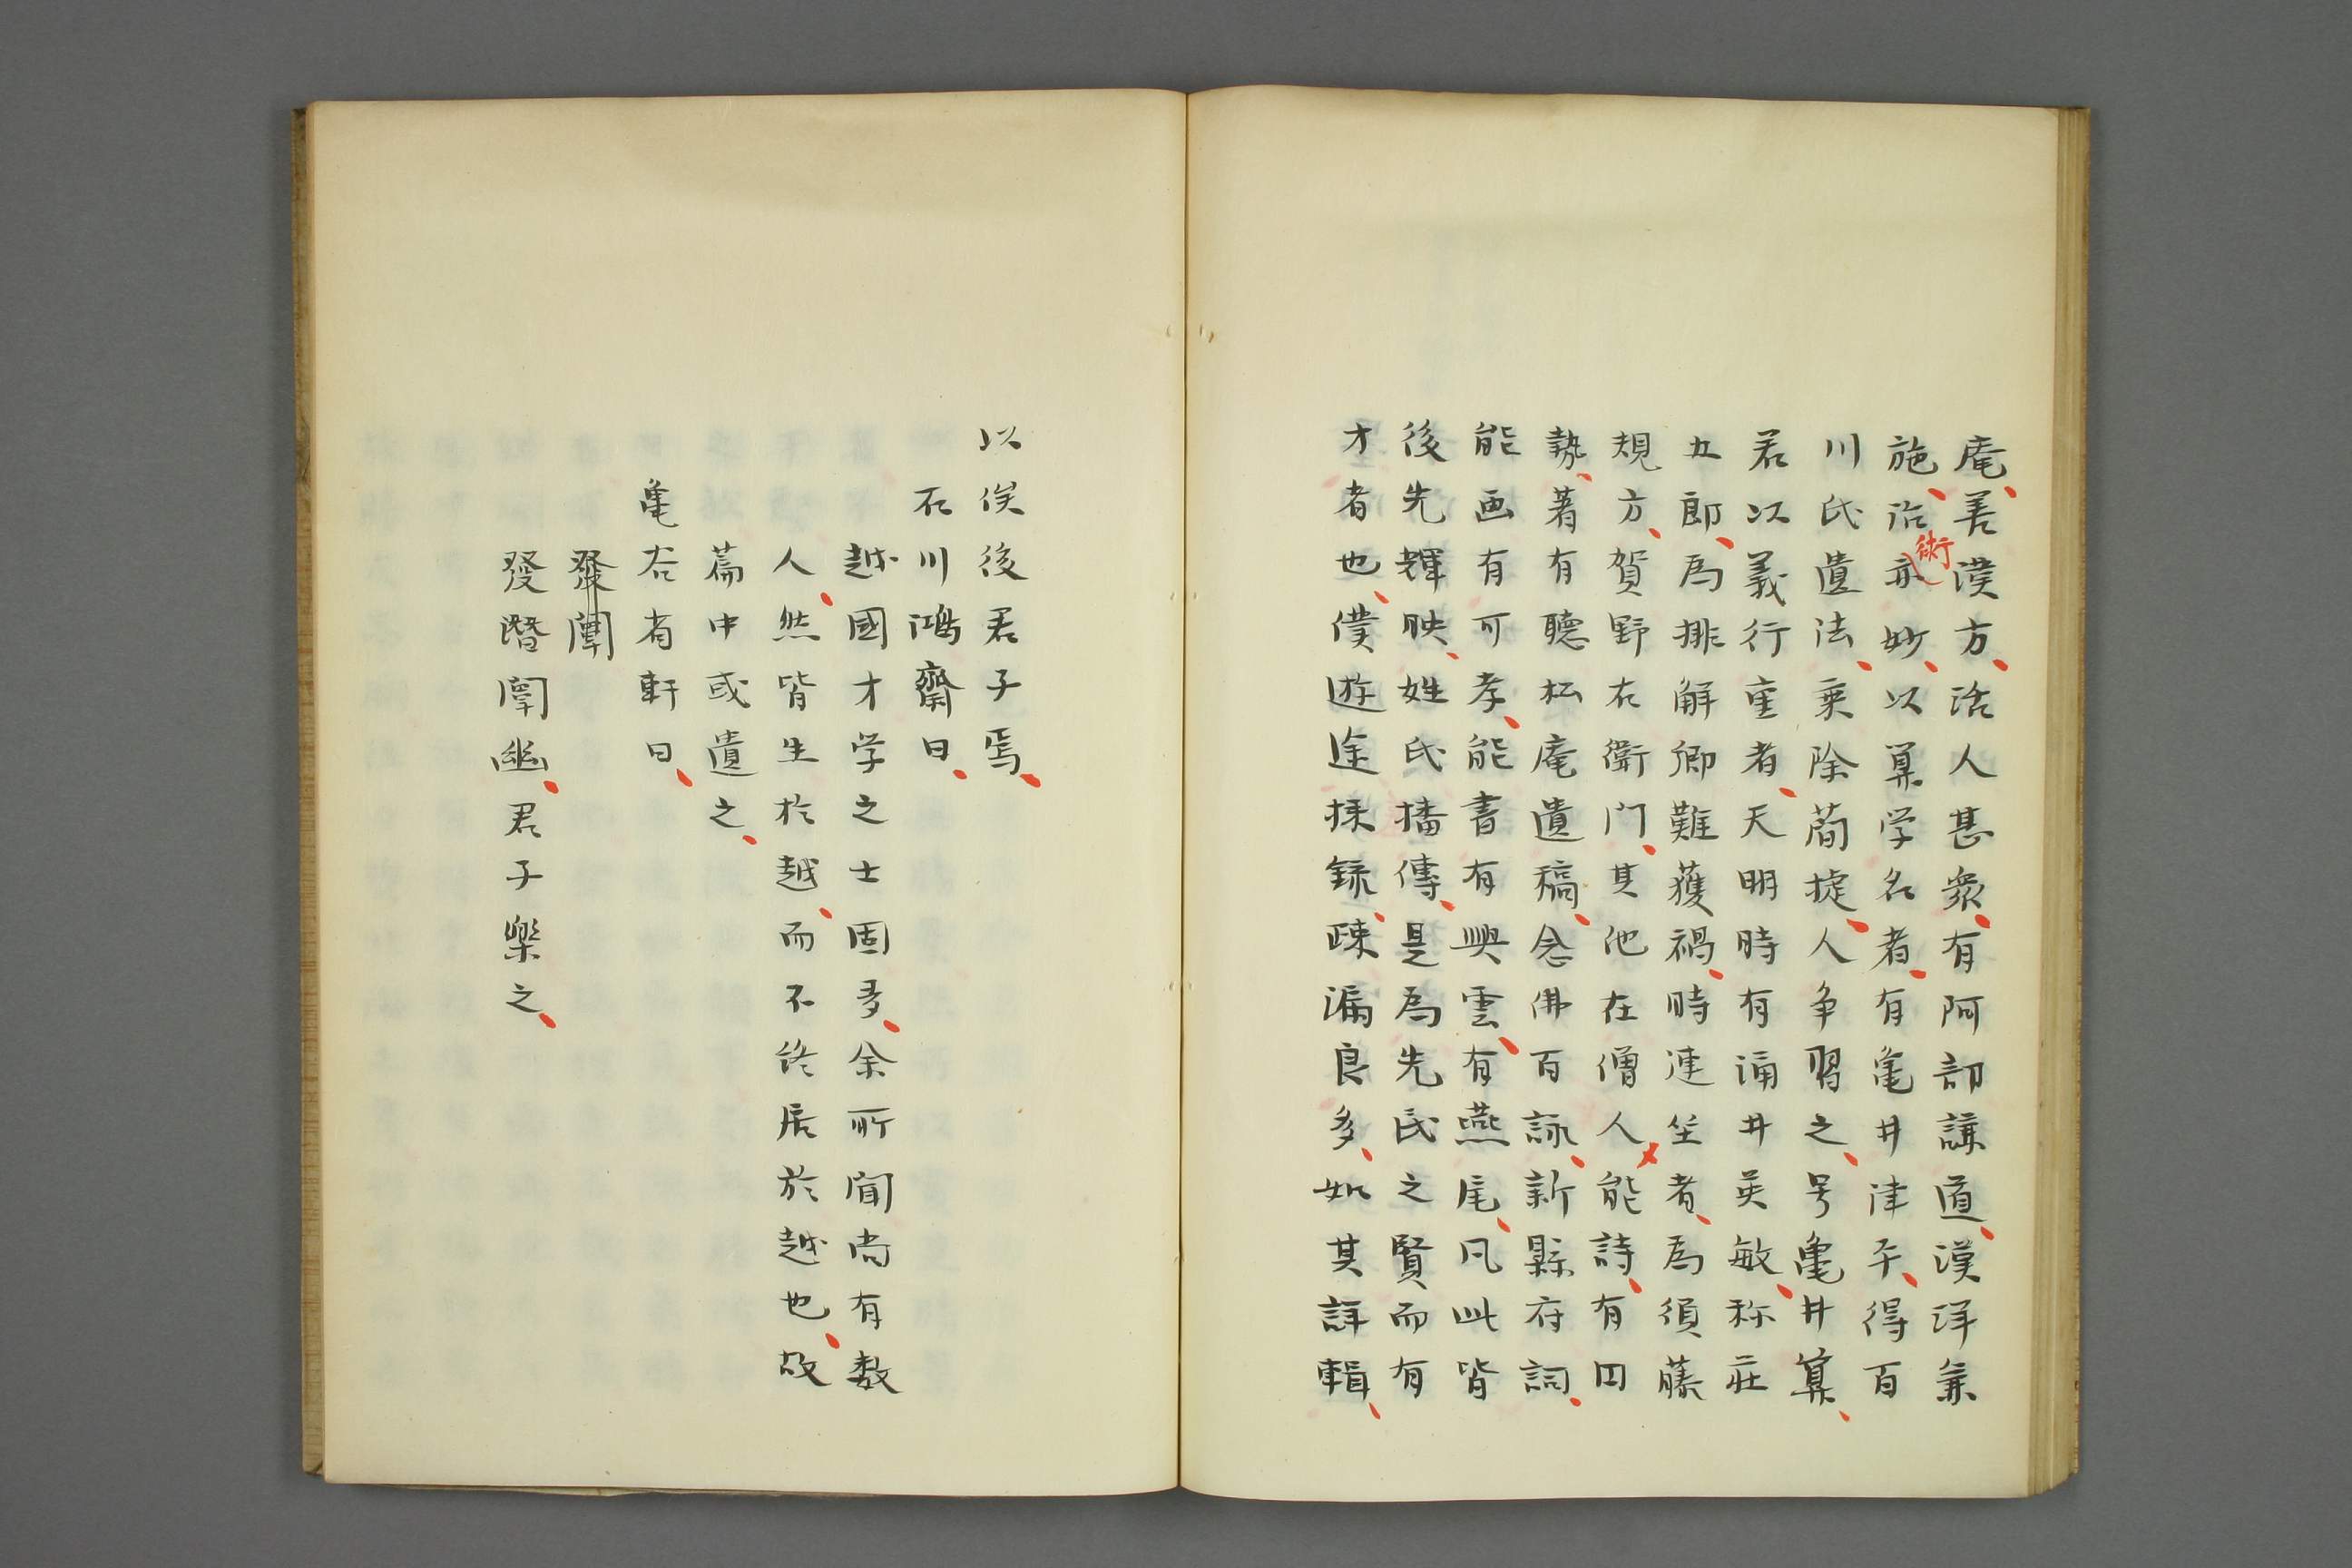 庵、善漢方、活人甚衆、有阿部謙道、漢洋兼
施、治術亦妙、以算学名者、有亀井津平、得百
川氏遺法、乗除簡捷、人争習之、号亀井算、
若以義行重者、天明時有涌井英敏、称荘
五郎、為排解郷難獲禍、時連坐者、為須藤
規方、賀野右衛门、其他在僧人能詩、有円
勢、著有聴松庵遺稿、念佛百詠、新縣府詞、
能画有可孝、能書有興雲、有燕尾、凡此皆
後先輝映、姓氏播傳、是為先民之賢而有
才者也、僕遊途採録、疎漏良多、如其詳輯、
以俟後君子焉、
石川鴻齋曰、
越國才学之士固多、余所聞尚有数
人、然皆生於越、而不終居於越也、故
篇中或遺之、
亀谷省軒曰、
發闡
發潛闡幽、君子樂之、